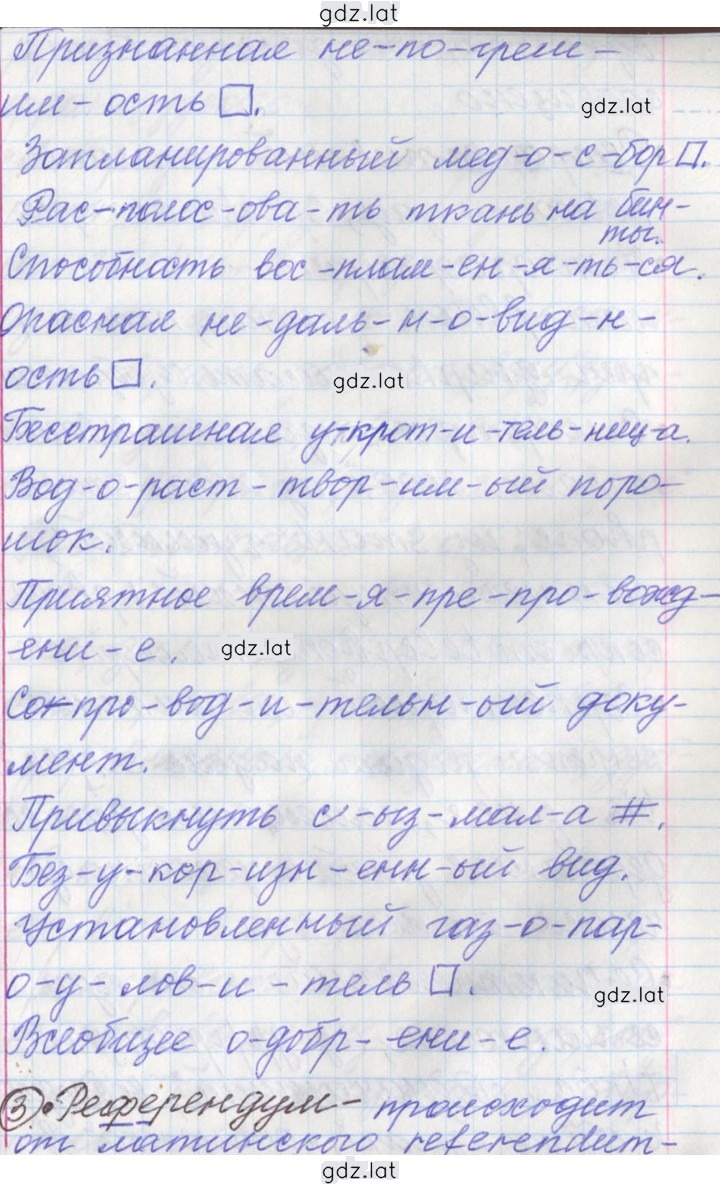 gdz.lat
Признанная не-по-греш-
им-ость □.
gdz.lat
Запланированный мед-о-с-бор □.
Рас-полос-ова-ть ткань на бин-
ты.
Способность вос-плам-ен-я-ть-ся.
Опасная не-даль-н-о-вид-н-
ость □.
gdz.lat
Бесстрашная у-крот-и-тель-ниц-а.
Вод-о-раст-твор-им-ый поро-
шок.
Приятное врем-я-пре-про-вожд-
-ени-е.
gdz.lat
Со-про-вод-и-тельн-ый доку-
мент.
Привыкнуть с-ыз-мал-а #.
Без-у-кор-изн-енн-ый вид.
Установленный газ-о-пар-
о-у-лов-и-тель □.
gdz.lat
Всеобщее о-добр-ени-е.
③. Референдум - происходит
от латинского referendum-
gdz.lat